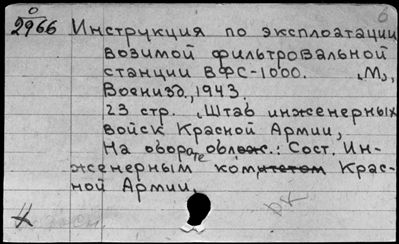 О
2966 Инструкция по эксплоатации
возимой фильтровальной
станции ВФС-1000. „М„,
Воениз∂., 1943.
23 стр. „Штаб инженерных
войск Красной Армии„
На обороте облож.: Сост. Ин-
женерным комитетом Крас-
ной Армии.
рк